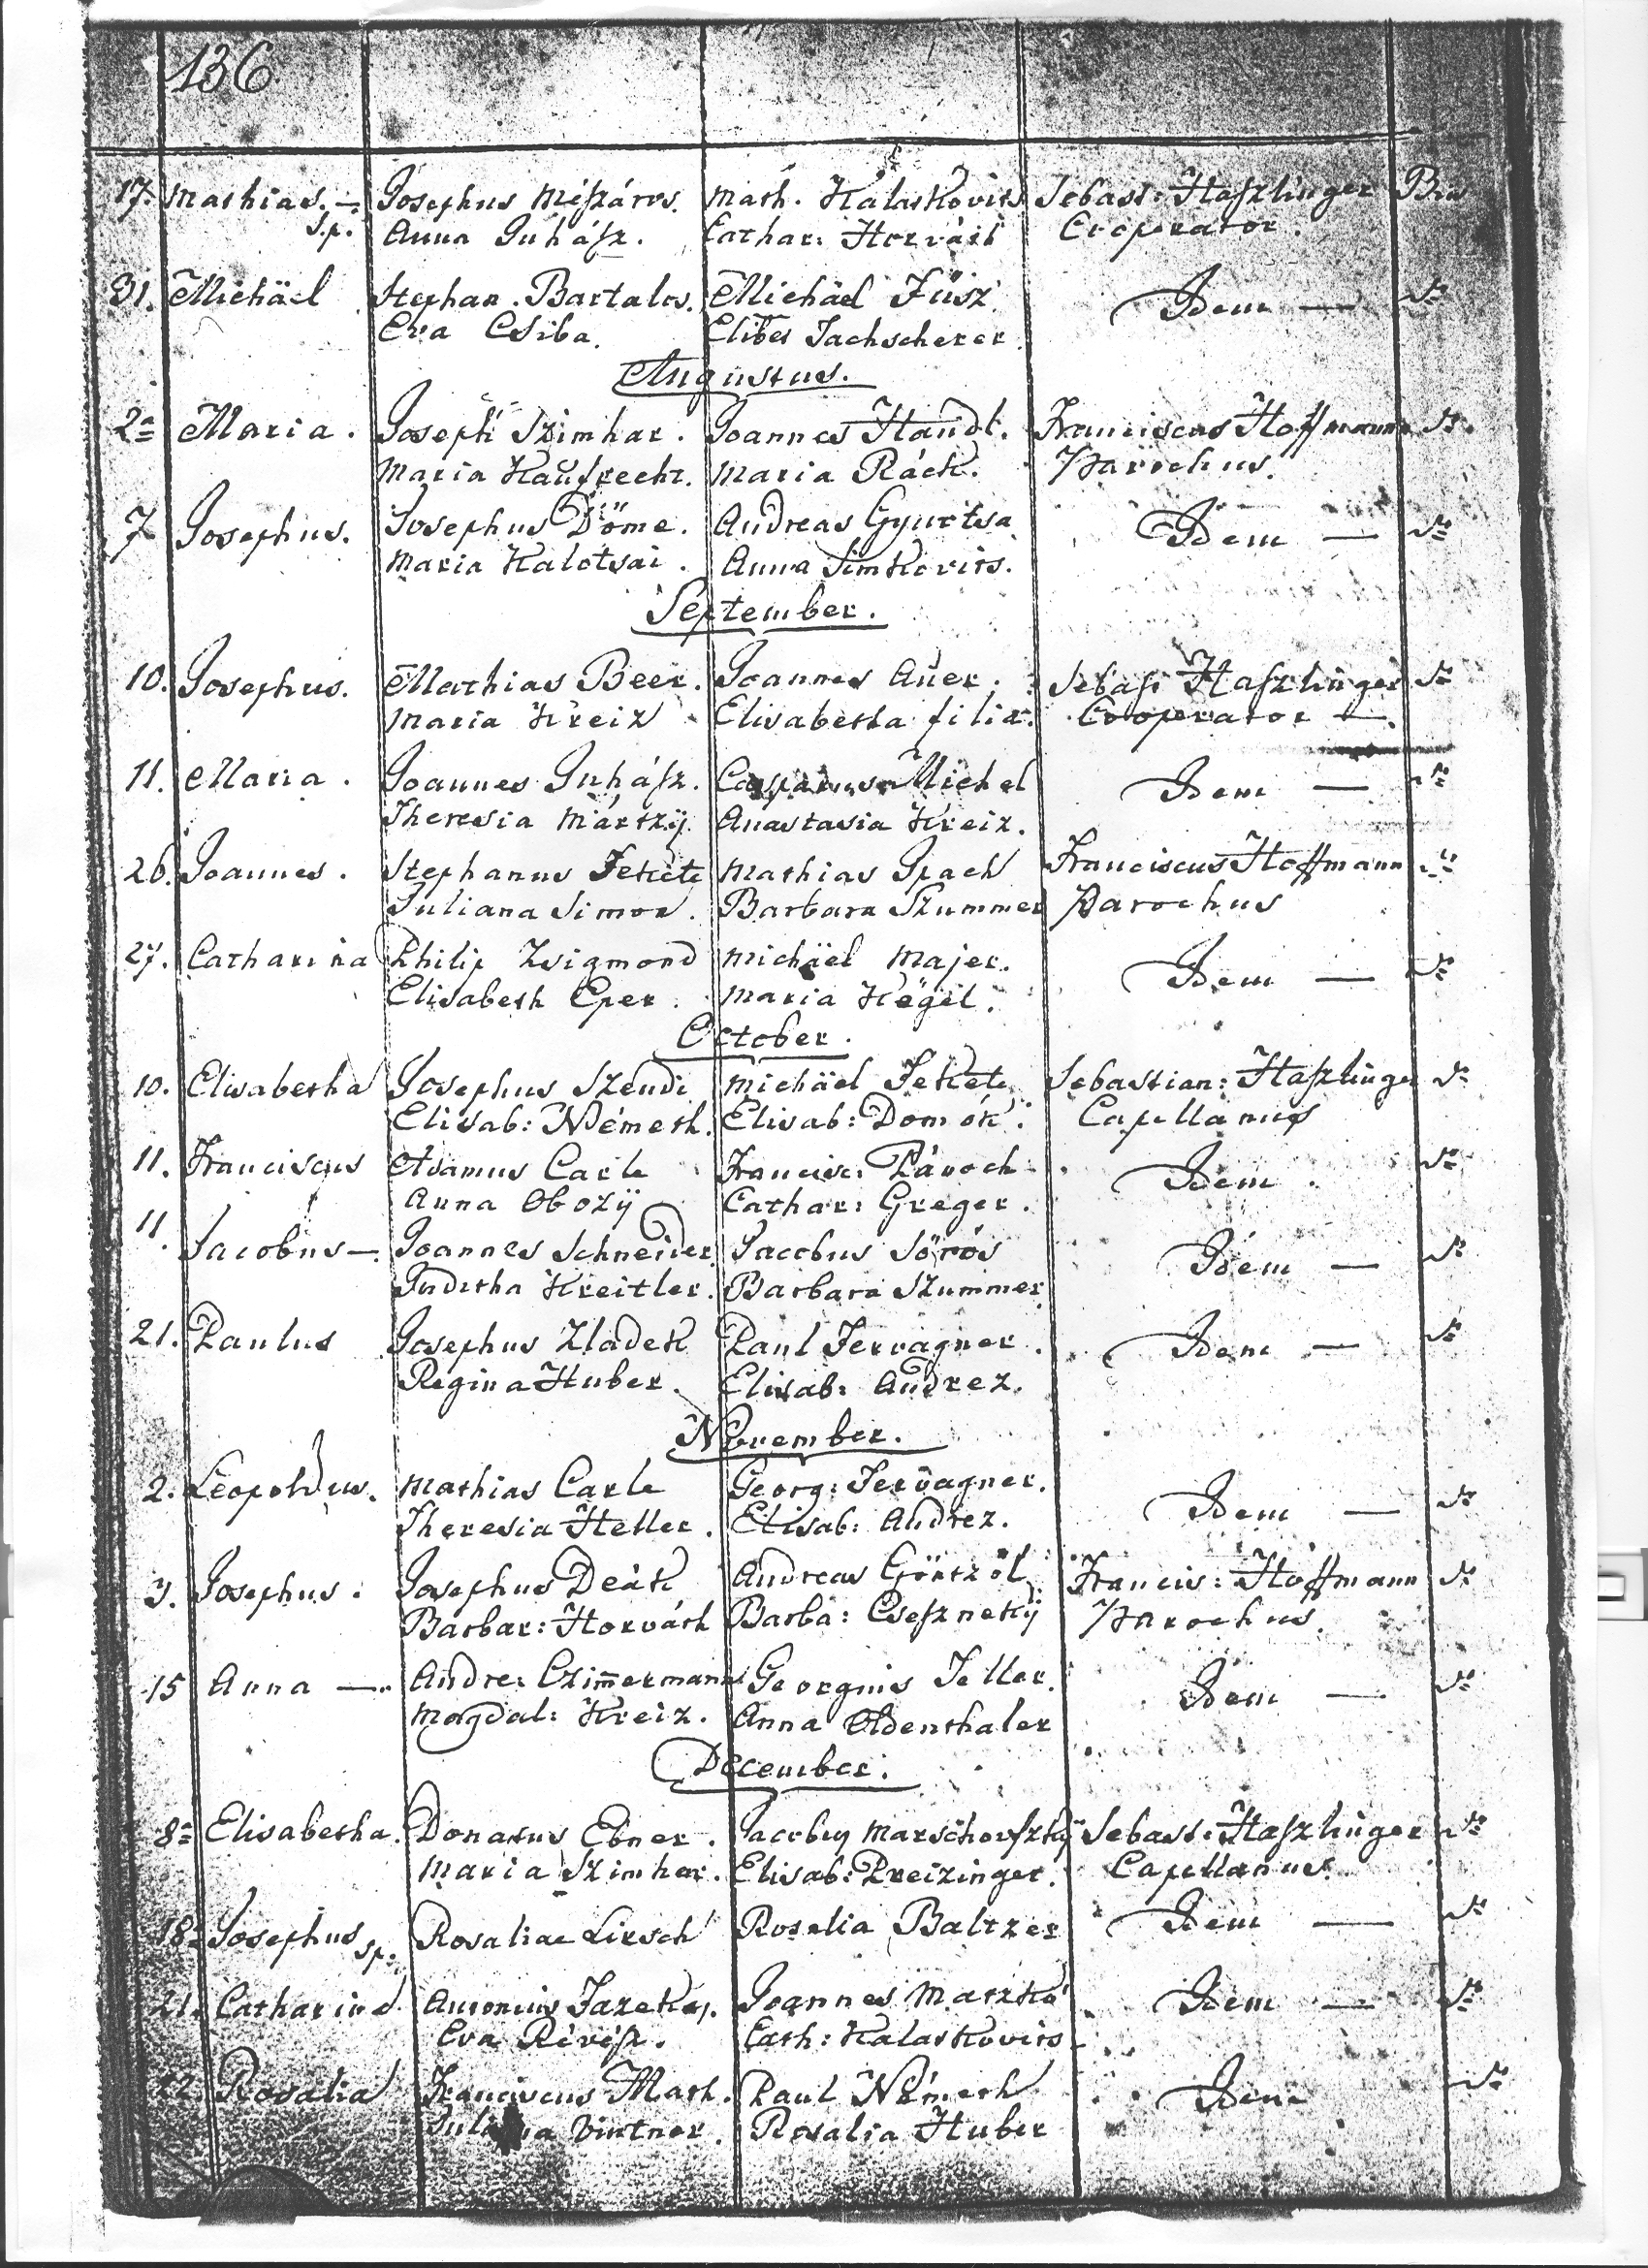 136
17. Mathias. — Josephus Mészáros. Math. Kalaskovits Sebast: Haszlinger
Sp. Anna Juhász. Cathar: Horváth Cooperator.
31. Michäel Stephan. Bartalos. Michäel Füsz
Idem —
Eva Csiba. Elibet Jachscherer
Augustus.
2a Maria. Joseph Szimhar. Joannes Handl. Franciscus Hoffmann
Maria Kaufrecht. Maria Ráck. Parochus.
7 Josephus. Josephus Döme. Andreas Gyurtsa Idem —
Maria Kalotsai. Anna Simkovits.
September.
10. Josephus. Mathias Beer. Joannes Auer. Sebast Haszlinger
Maria Kreiz Elisabetha filia. Cooperator —
11. Maria. Joannes Juhász. Casparus Michel Idem —
Theresia Mártzÿ. Anastasia Kreiz.
26. Joannes. Stephanus Fekete Mathias Spach Franciscus Hoffmann
Juliana Simon. Barbara Szummer Parochus
27. Catharina Philip Zsigmond Michäel Majer. Idem —
Elisabeth Eper. Maria Kögel.
October.
10. Elisabetha Josephus Szendi Michäel Fekete Sebastian: Haszlinger
Elisab: Németh. Elisab: Domok. Capellanus
11. Franciscus Adamus Carle Francisc: Pároch Idem.
Anna Obozÿ Cathar: Greger.
11. Jacobus — Joannes Schneider Jacobus Sörös Idem —
Juditha Kreitler. Barbara Szummer
21. Paulus Josephus Zladek Paul Fervagner. Idem —
Regina Huber. Elisab: Andrez.
November.
2. Leopoldus. Mathias Carle Georg: Fervagner. Idem —
Theresia Heller. Elisab: Andrez.
3. Josephus. Josephus Deák Andreas Göntzöl Francis: Hoffmann
Barbar: Horváth Barba: Csesznekÿ Parochus.
15 Anna — Andre: Czimermann Georgius Feller. Idem —
Magdal: Kreiz. Anna Oldenthaler
December.
8a Elisabetha. Donatus Ebner. Jacobus Marschovszky Sebast: Haszlinger
Maria Szimhar. Elisab: Preizinger. Capellanus.
18. Josephus Sp. Rosaliae Lirsch Rosalia Baltzer Idem —
21. Catharina Antonius Fazekas. Joannes Matzkó Idem —
Eva Révész. Cath: Kalaskovits
22 Rosalia Franciscus Math. Paul Németh Idem
Juliana Vintner. Rosalia Huber